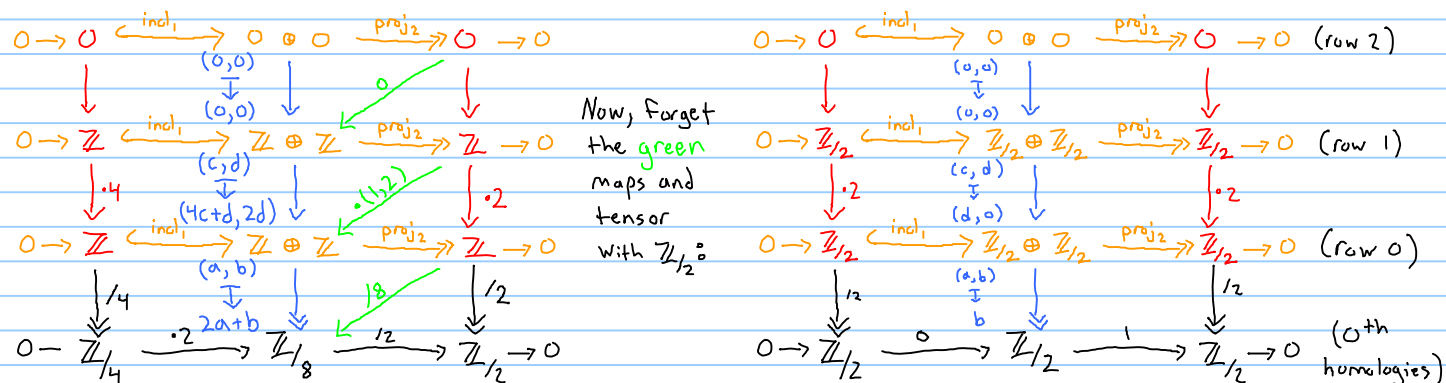 0 → 0 incl₁ 0 ⊕ 0 proj₂ 0 → 0
(0,0)
(0,0)
0
0 → ℤ incl₁ ℤ ⊕ ℤ proj₂ ℤ → 0
(c,d)
(4c+d, 2d)
·4 ·(1,2) ·2
0 → ℤ incl₁ ℤ ⊕ ℤ proj₂ ℤ → 0
(a,b)
2a+b
/4 /8 /2
0 — ℤ/4 ·2 ℤ/8 /2 ℤ/2 → 0
Now, forget
the green
maps and
tensor
with ℤ/2:
0 → 0 incl₁ 0 ⊕ 0 proj₂ 0 → 0 (row 2)
(0,0)
(0,0)
0 → ℤ/2 incl₁ ℤ/2 ⊕ ℤ/2 proj₂ ℤ/2 → 0 (row 1)
(c,d)
(d,0)
·2 ·2
0 → ℤ/2 incl₁ ℤ/2 ⊕ ℤ/2 proj₂ ℤ/2 → 0 (row 0)
(a,b)
b
/2 /2
0 → ℤ/2 0 ℤ/2 1 ℤ/2 → 0 (0th
homologies)